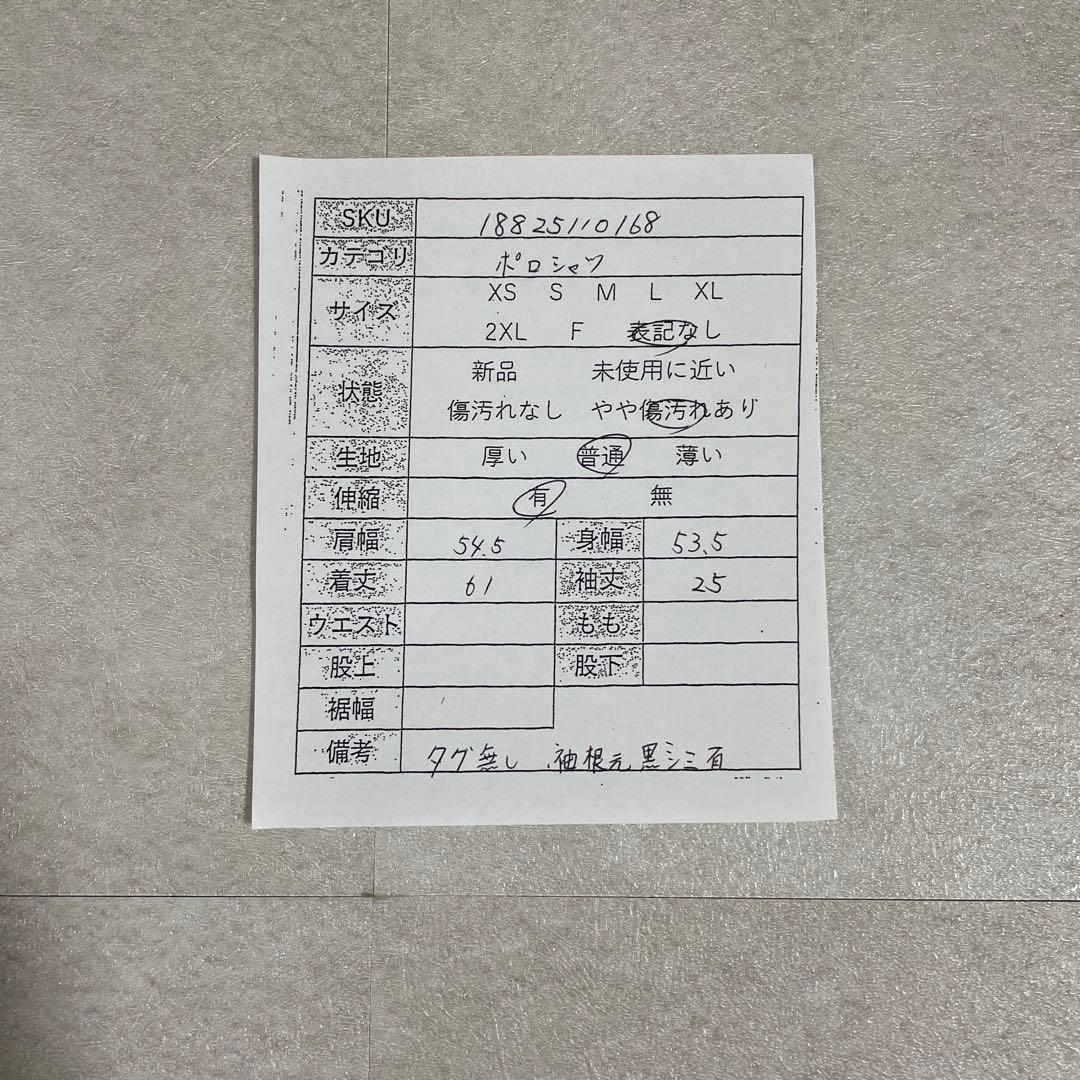 SKU 18825110168
カテゴリ ポロシャツ
サイズ XS S M L XL
2XL F 表記なし
状態 新品 未使用に近い
傷汚れなし やや傷汚れあり
生地 厚い 普通 薄い
伸縮 有 無
肩幅 54.5 身幅 53.5
着丈 61 袖丈 25
ウエスト もも
股上 股下
裾幅
備考 タグ無し 袖根元黒シミ有